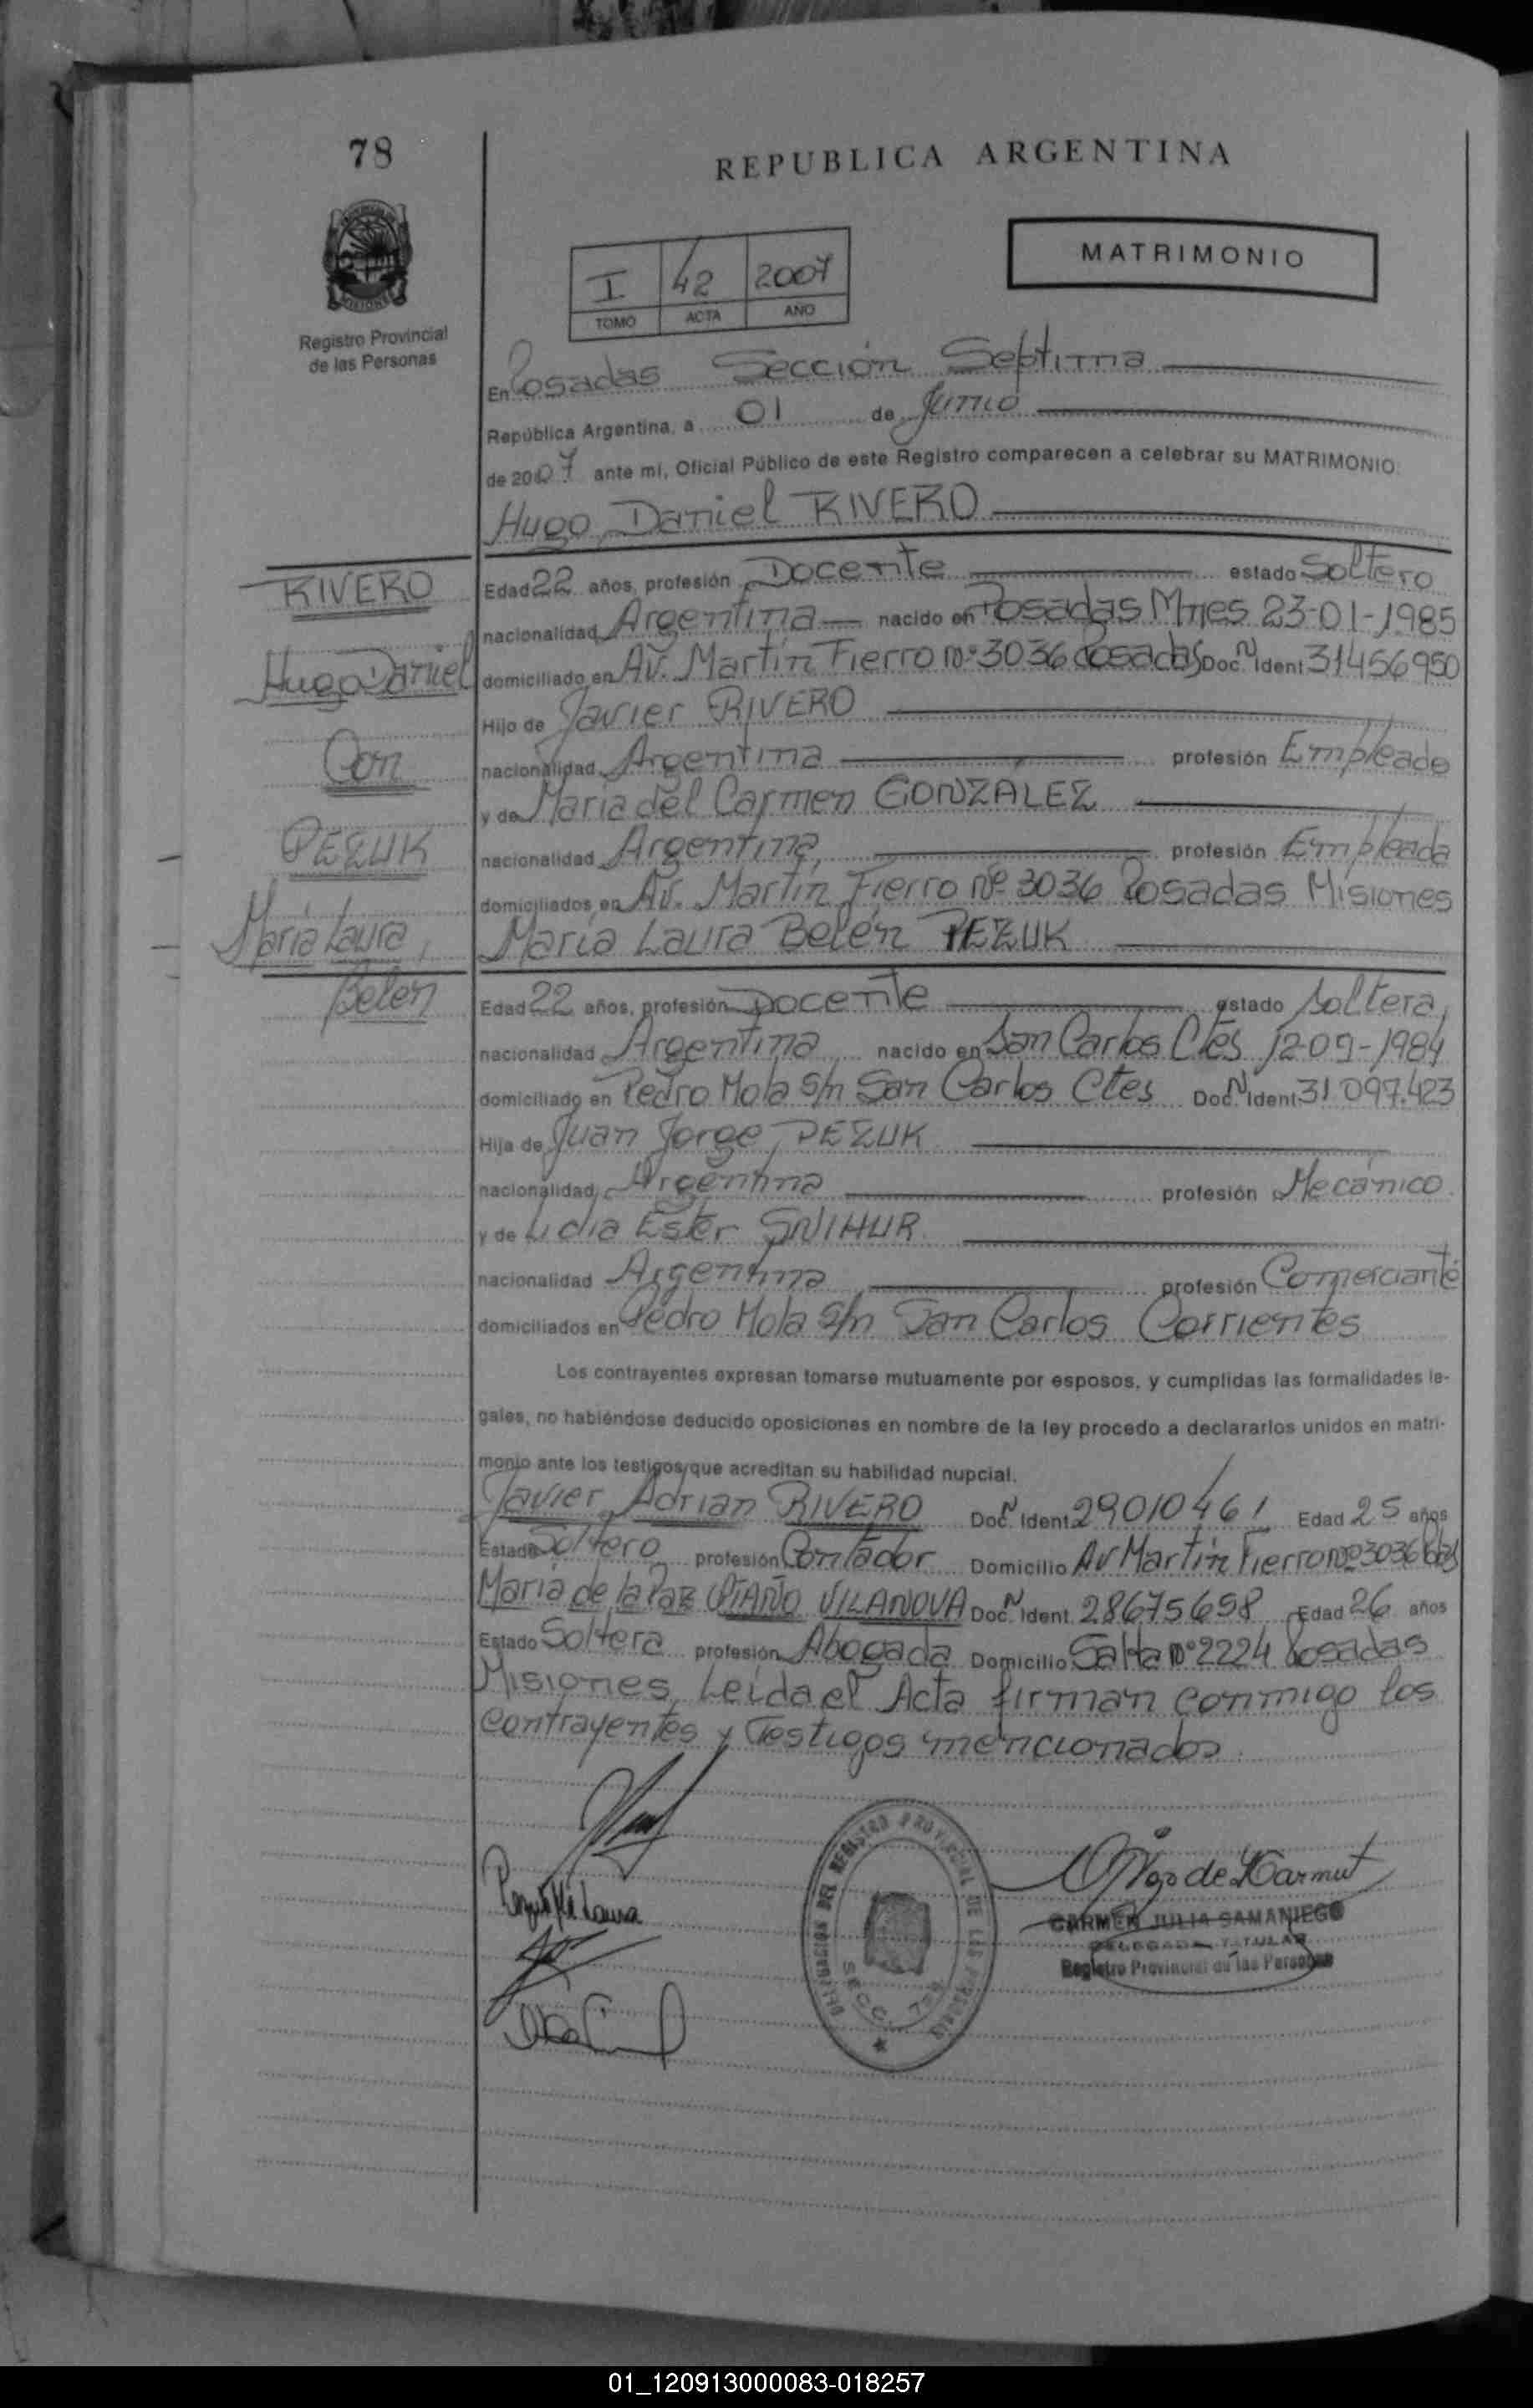 78
REPUBLICA ARGENTINA
MATRIMONIO
I 42 2007
TOMO ACTA AÑO
Registro Provincial
de las Personas
En Posadas Sección Septima
República Argentina, a 01 de Junio
de 2007 ante mí, Oficial Público de este Registro comparecen a celebrar su MATRIMONIO
Hugo Daniel RIVERO
RIVERO
Hugo Daniel
Con
PEZUK
María Laura
Belen
Edad 22 años, profesión Docente estado Soltero
nacionalidad Argentina nacido en Posadas Mnes 23-01-1985
domiciliado en Av. Martín Fierro Nº 3036 Posadas Doc. N Ident 31456950
Hijo de Javier RIVERO
nacionalidad Argentina profesión Empleado
y de María del Carmen GONZÁLEZ
nacionalidad Argentina profesión Empleada
domiciliados en Av. Martín Fierro Nº 3036 Posadas Misiones
María Laura Belén PEZUK
Edad 22 años, profesión Docente estado Soltera
nacionalidad Argentina nacido en San Carlos Ctes 12-09-1984
domiciliado en Pedro Mola s/n San Carlos Ctes Doc. N Ident 31 097.423
Hija de Juan Jorge PEZUK
nacionalidad Argentina profesión Mecánico
y de Lidia Ester SNIHUR
nacionalidad Argentina profesión Comerciante
domiciliados en Pedro Mola s/n San Carlos Corrientes
Los contrayentes expresan tomarse mutuamente por esposos, y cumplidas las formalidades le-
gales, no habiéndose deducido oposiciones en nombre de la ley procedo a declararlos unidos en matri-
monio ante los testigos que acreditan su habilidad nupcial.
Javier Adrian RIVERO Doc. N Ident 29010461 Edad 25 años
Estado Soltero profesión Contador Domicilio Av Martín Fierro Nº 3036 Pdas
María de la Paz VILANOVA Doc. N Ident 28675658 Edad 26 años
Estado Soltera profesión Abogada Domicilio Salta Nº 2224 Posadas
Misiones, Leída el Acta firman conmigo los
contrayentes y Testigos mencionados.
DELEGACION DEL REGISTRO PROVINCIAL DE LAS PERSONAS
SECC. 7
CARMEN JULIA SAMANIEGO
DELEGADA TITULAR
Registro Provincial de las Personas
01_120913000083-018257